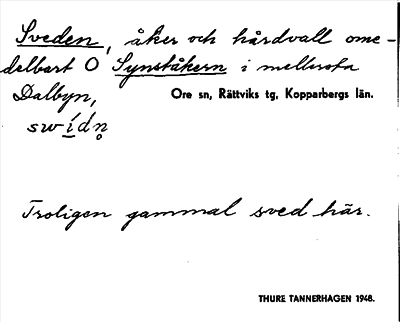 Sveden, åker och hårdvall ome-
delbart O Synståkern i mellersta
Dalbyn, Ore sn, Rättviks tg, Kopparbergs län.
swídn̥
Troligen gammal sved här.
THURE TANNERHAGEN 1948.